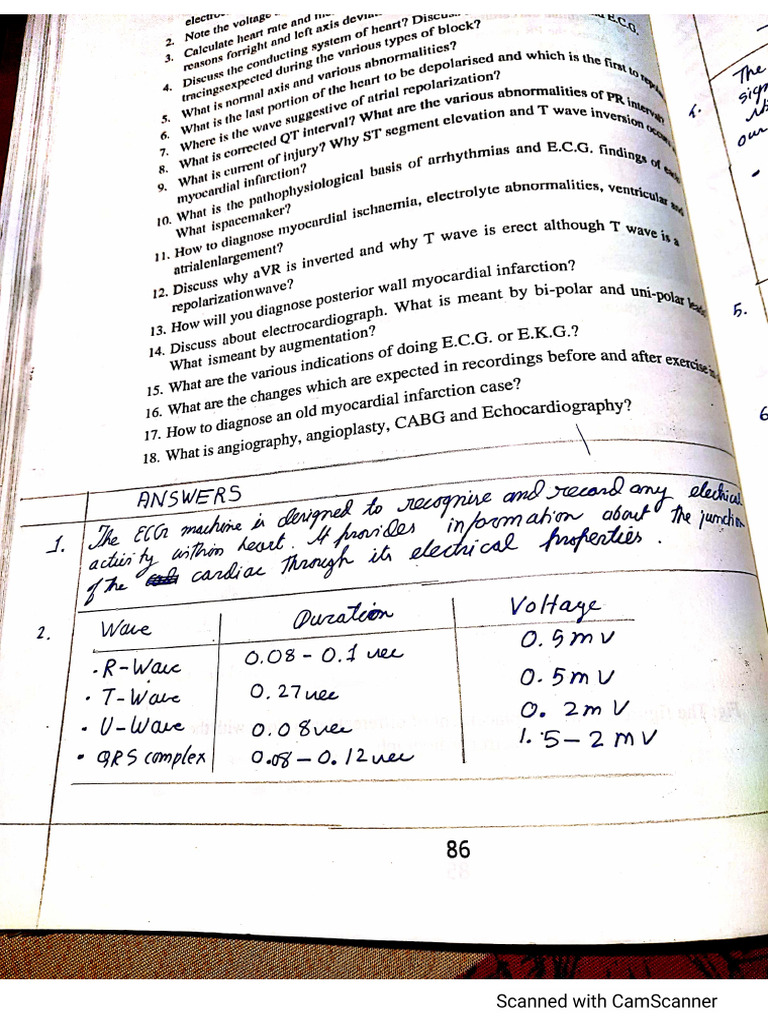 E.C.G.
2. Note the voltage
3. Calculate heart rate and
reasons forright and left axis
4. Discuss the conducting system of heart?
tracingsexpected during the various types of block?
5. What is normal axis and various abnormalities?
6. What is the last portion of the heart to be depolarised and which is the first to
7. Where is the wave suggestive of atrial repolarization?
8. What is corrected QT interval? What are the various abnormalities of PR interval
9. What is current of injury? Why ST segment elevation and T wave inversion
myocardial infarction?
10. What is the pathophysiological basis of arrhythmias and E.C.G. findings of
What ispacemaker?
11. How to diagnose myocardial ischaemia, electrolyte abnormalities, ventricular and
atrialenlargement?
12. Discuss why aVR is inverted and why T wave is erect although T wave is a
repolarizationwave?
13. How will you diagnose posterior wall myocardial infarction?
14. Discuss about electrocardiograph. What is meant by bi-polar and uni-polar
What ismeant by augmentation?
15. What are the various indications of doing E.C.G. or E.K.G.?
16. What are the changes which are expected in recordings before and after exercise
17. How to diagnose an old myocardial infarction case?
18. What is angiography, angioplasty, CABG and Echocardiography?
ANSWERS
1. The ECG machine is designed to recognise and record any electrical
activity within heart. It provides information about the junction
of the cardiac through its electrical properties.
2. Wave Duration Voltage
• R-Wave 0.08 – 0.1 sec 0.5mv
• T-Wave 0.27sec 0.5mV
• U-Wave 0.08sec 0.2mV
• QRS complex 0.08 – 0.12sec 1.5–2mV
86
The
our
5.
6
Scanned with CamScanner